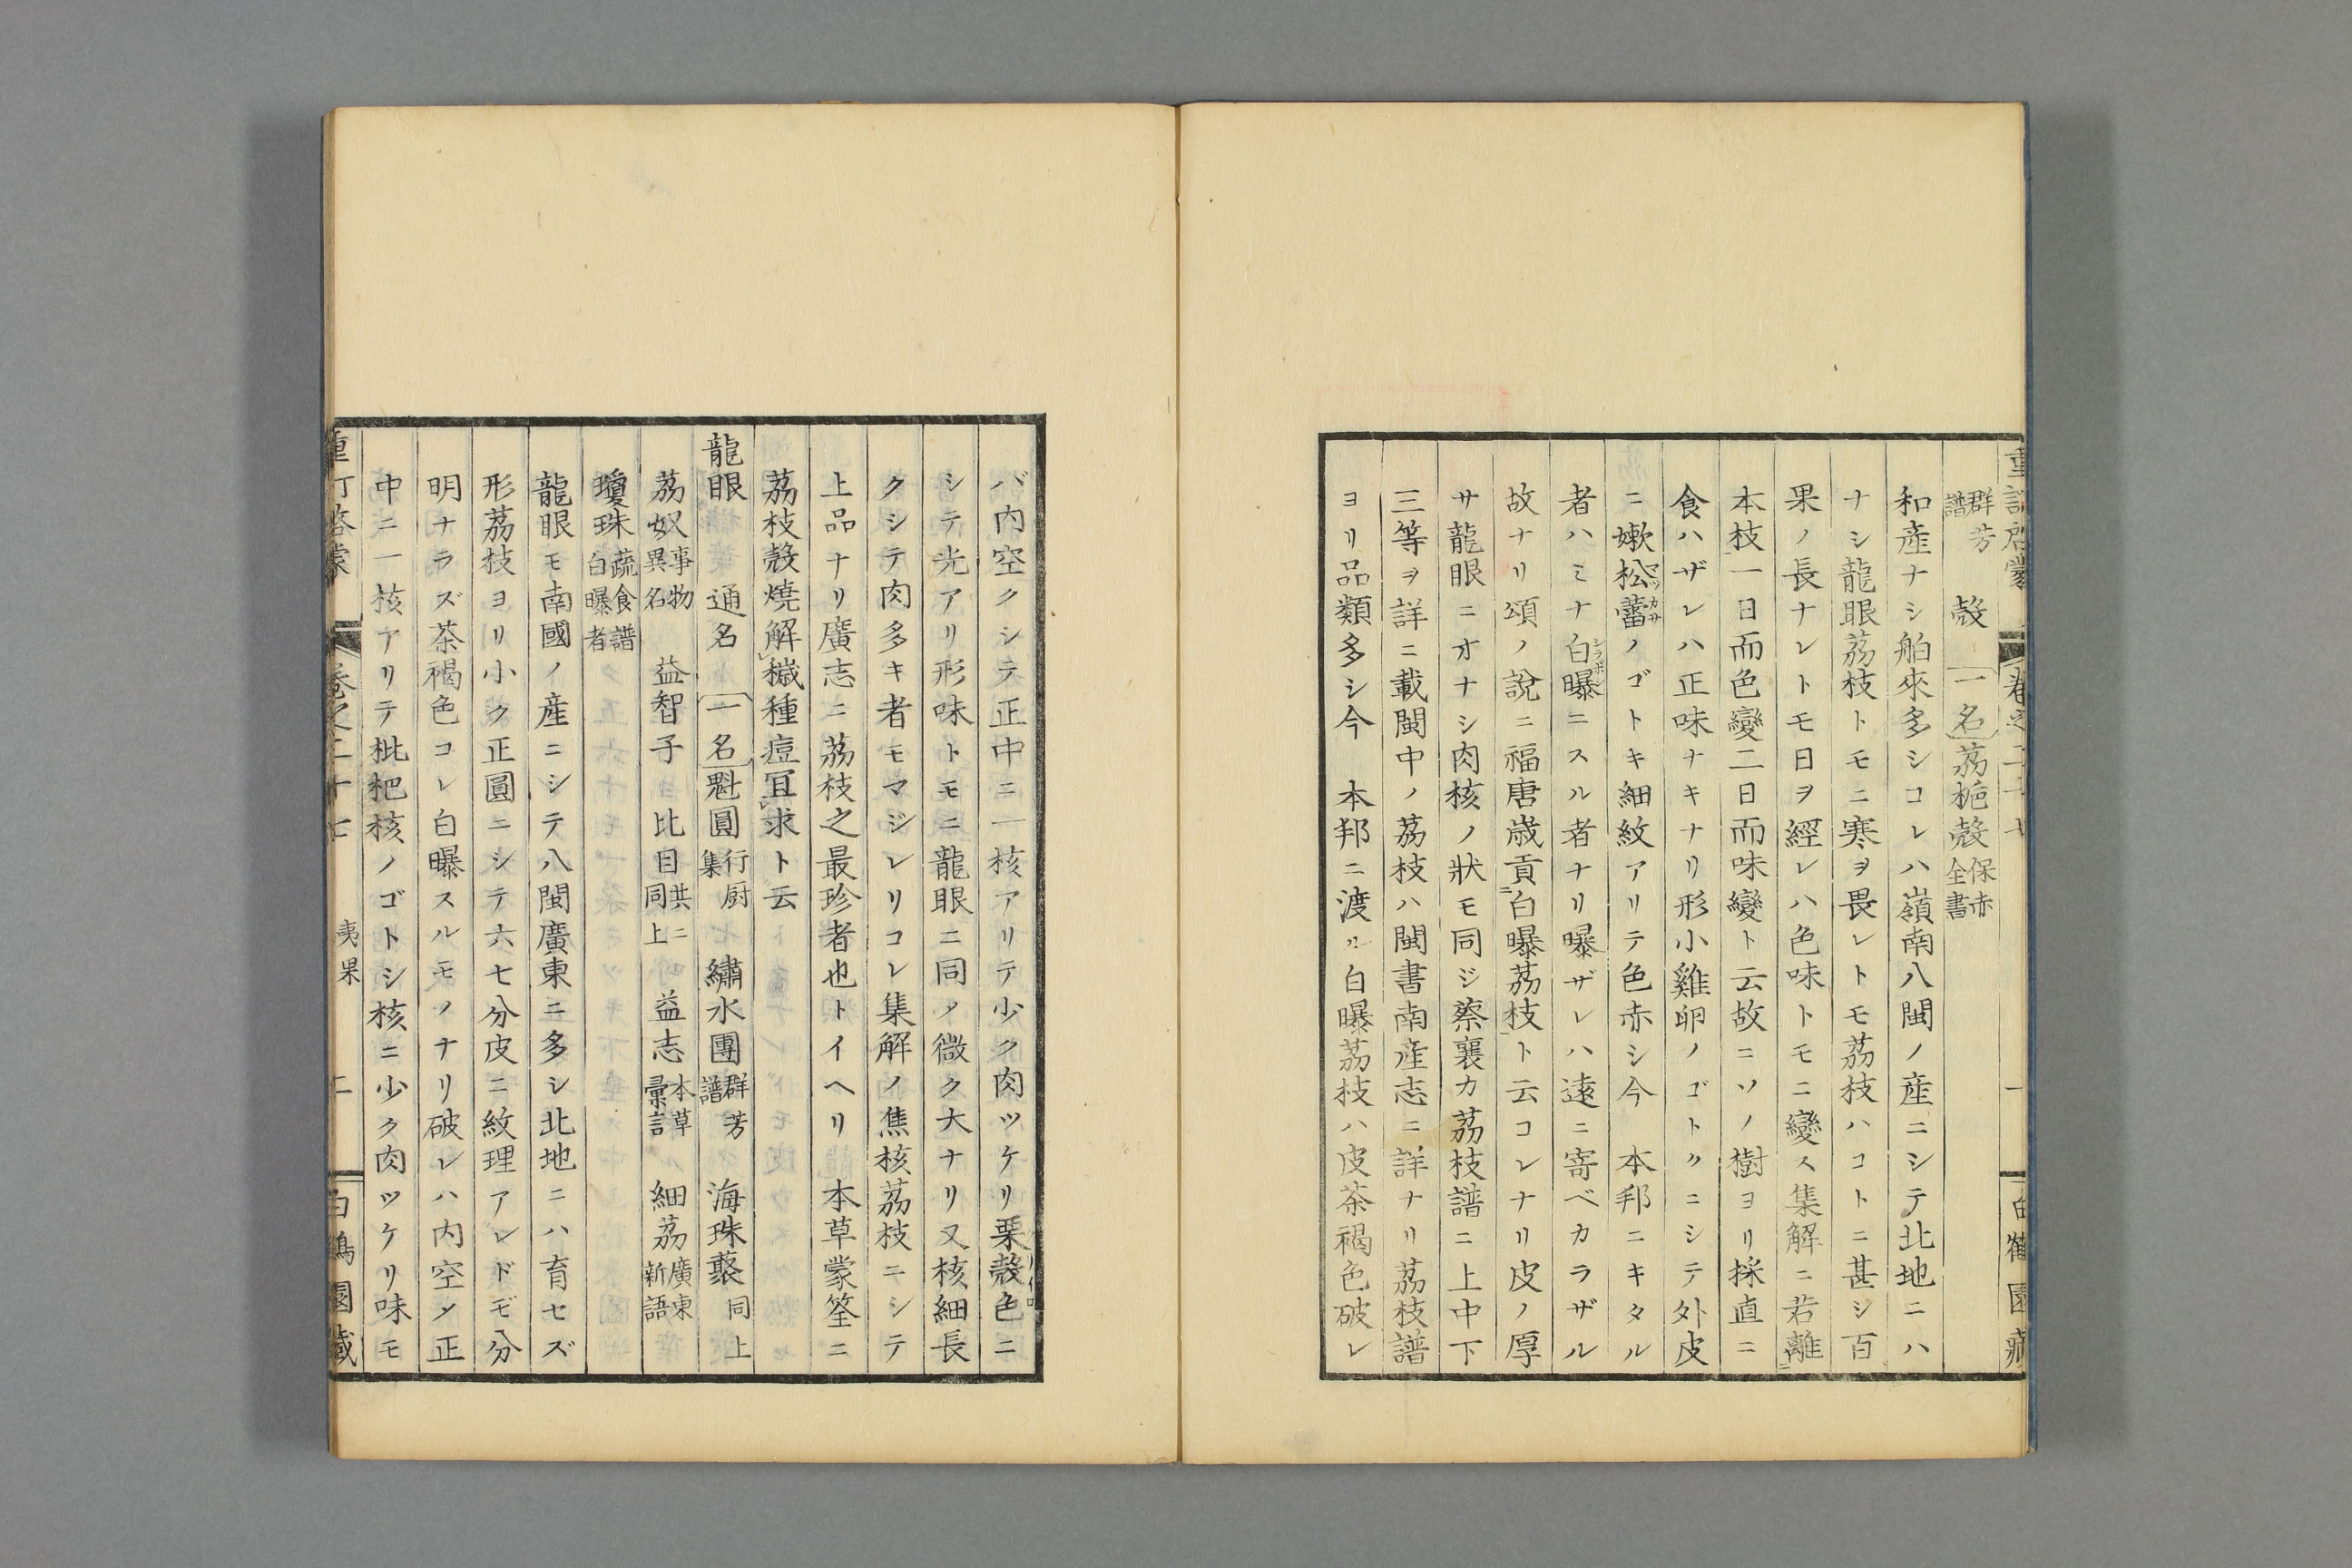 重訂啓蒙 卷之二十七 一 白鶴園藏
群芳譜 殼 一名 茘梔殼 保赤全書
和産ナシ舶來多シコレハ嶺南八閩ノ産ニシテ北地ニハ
ナシ龍眼茘枝トモニ寒ヲ畏レトモ茘枝ハコトニ甚シ百
果ノ長ナレトモ日ヲ經レハ色味トモニ變ス集解ニ若離
本枝一日而色變二日而味變ト云故ニソノ樹ヨリ採直ニ
食ハザレハ正味ナキナリ形小雞卵ノゴトクニシテ外皮
ニ嫩松蕾ノゴトキ細紋アリテ色赤シ今 本邦ニキタル
者ハミナ白曝ニスル者ナリ曝ザレハ遠ニ寄ベカラザル
故ナリ頌ノ說ニ福唐歳貢白曝茘枝ト云コレナリ皮ノ厚
サ龍眼ニオナシ肉核ノ狀モ同ジ蔡襄カ茘枝譜ニ上中下
三等ヲ詳ニ載閩中ノ茘枝ハ閩書南産志ニ詳ナリ茘枝譜
ヨリ品類多シ今 本邦ニ渡ル白曝茘枝ハ皮茶褐色破レ
バ内空クシテ正中ニ一核アリテ少ク肉ツケリ栗殼色ニ
シテ光アリ形味トモニ龍眼ニ同ノ微ク大ナリ又核細長
クシテ肉多キ者モマジレリコレ集解ノ焦核茘枝ニシテ
上品ナリ廣志ニ茘枝之最珍者也トイヘリ 本草蒙筌ニ
茘枝殼燒解穢種痘冝求ト云
龍眼 通名 一名 魁圓 行厨集 繡水團 群芳譜 海珠藂 同上
茘奴 事物異名 益智子 比目 共ニ同上 益志 本草彙言 細茘 廣東新語
瓊珠 蔬食譜白曝者
龍眼モ南國ノ産ニシテ八閩廣東ニ多シ北地ニハ育セズ
形茘枝ヨリ小ク正圓ニシテ六七分皮ニ紋理アレドモ分
明ナラズ茶褐色コレ白曝スルモノナリ破レハ内空ノ正
中ニ一核アリテ枇杷核ノゴトシ核ニ少ク肉ツケリ味モ
重訂啓蒙 卷之二十七 夷果 二 白鶴園藏